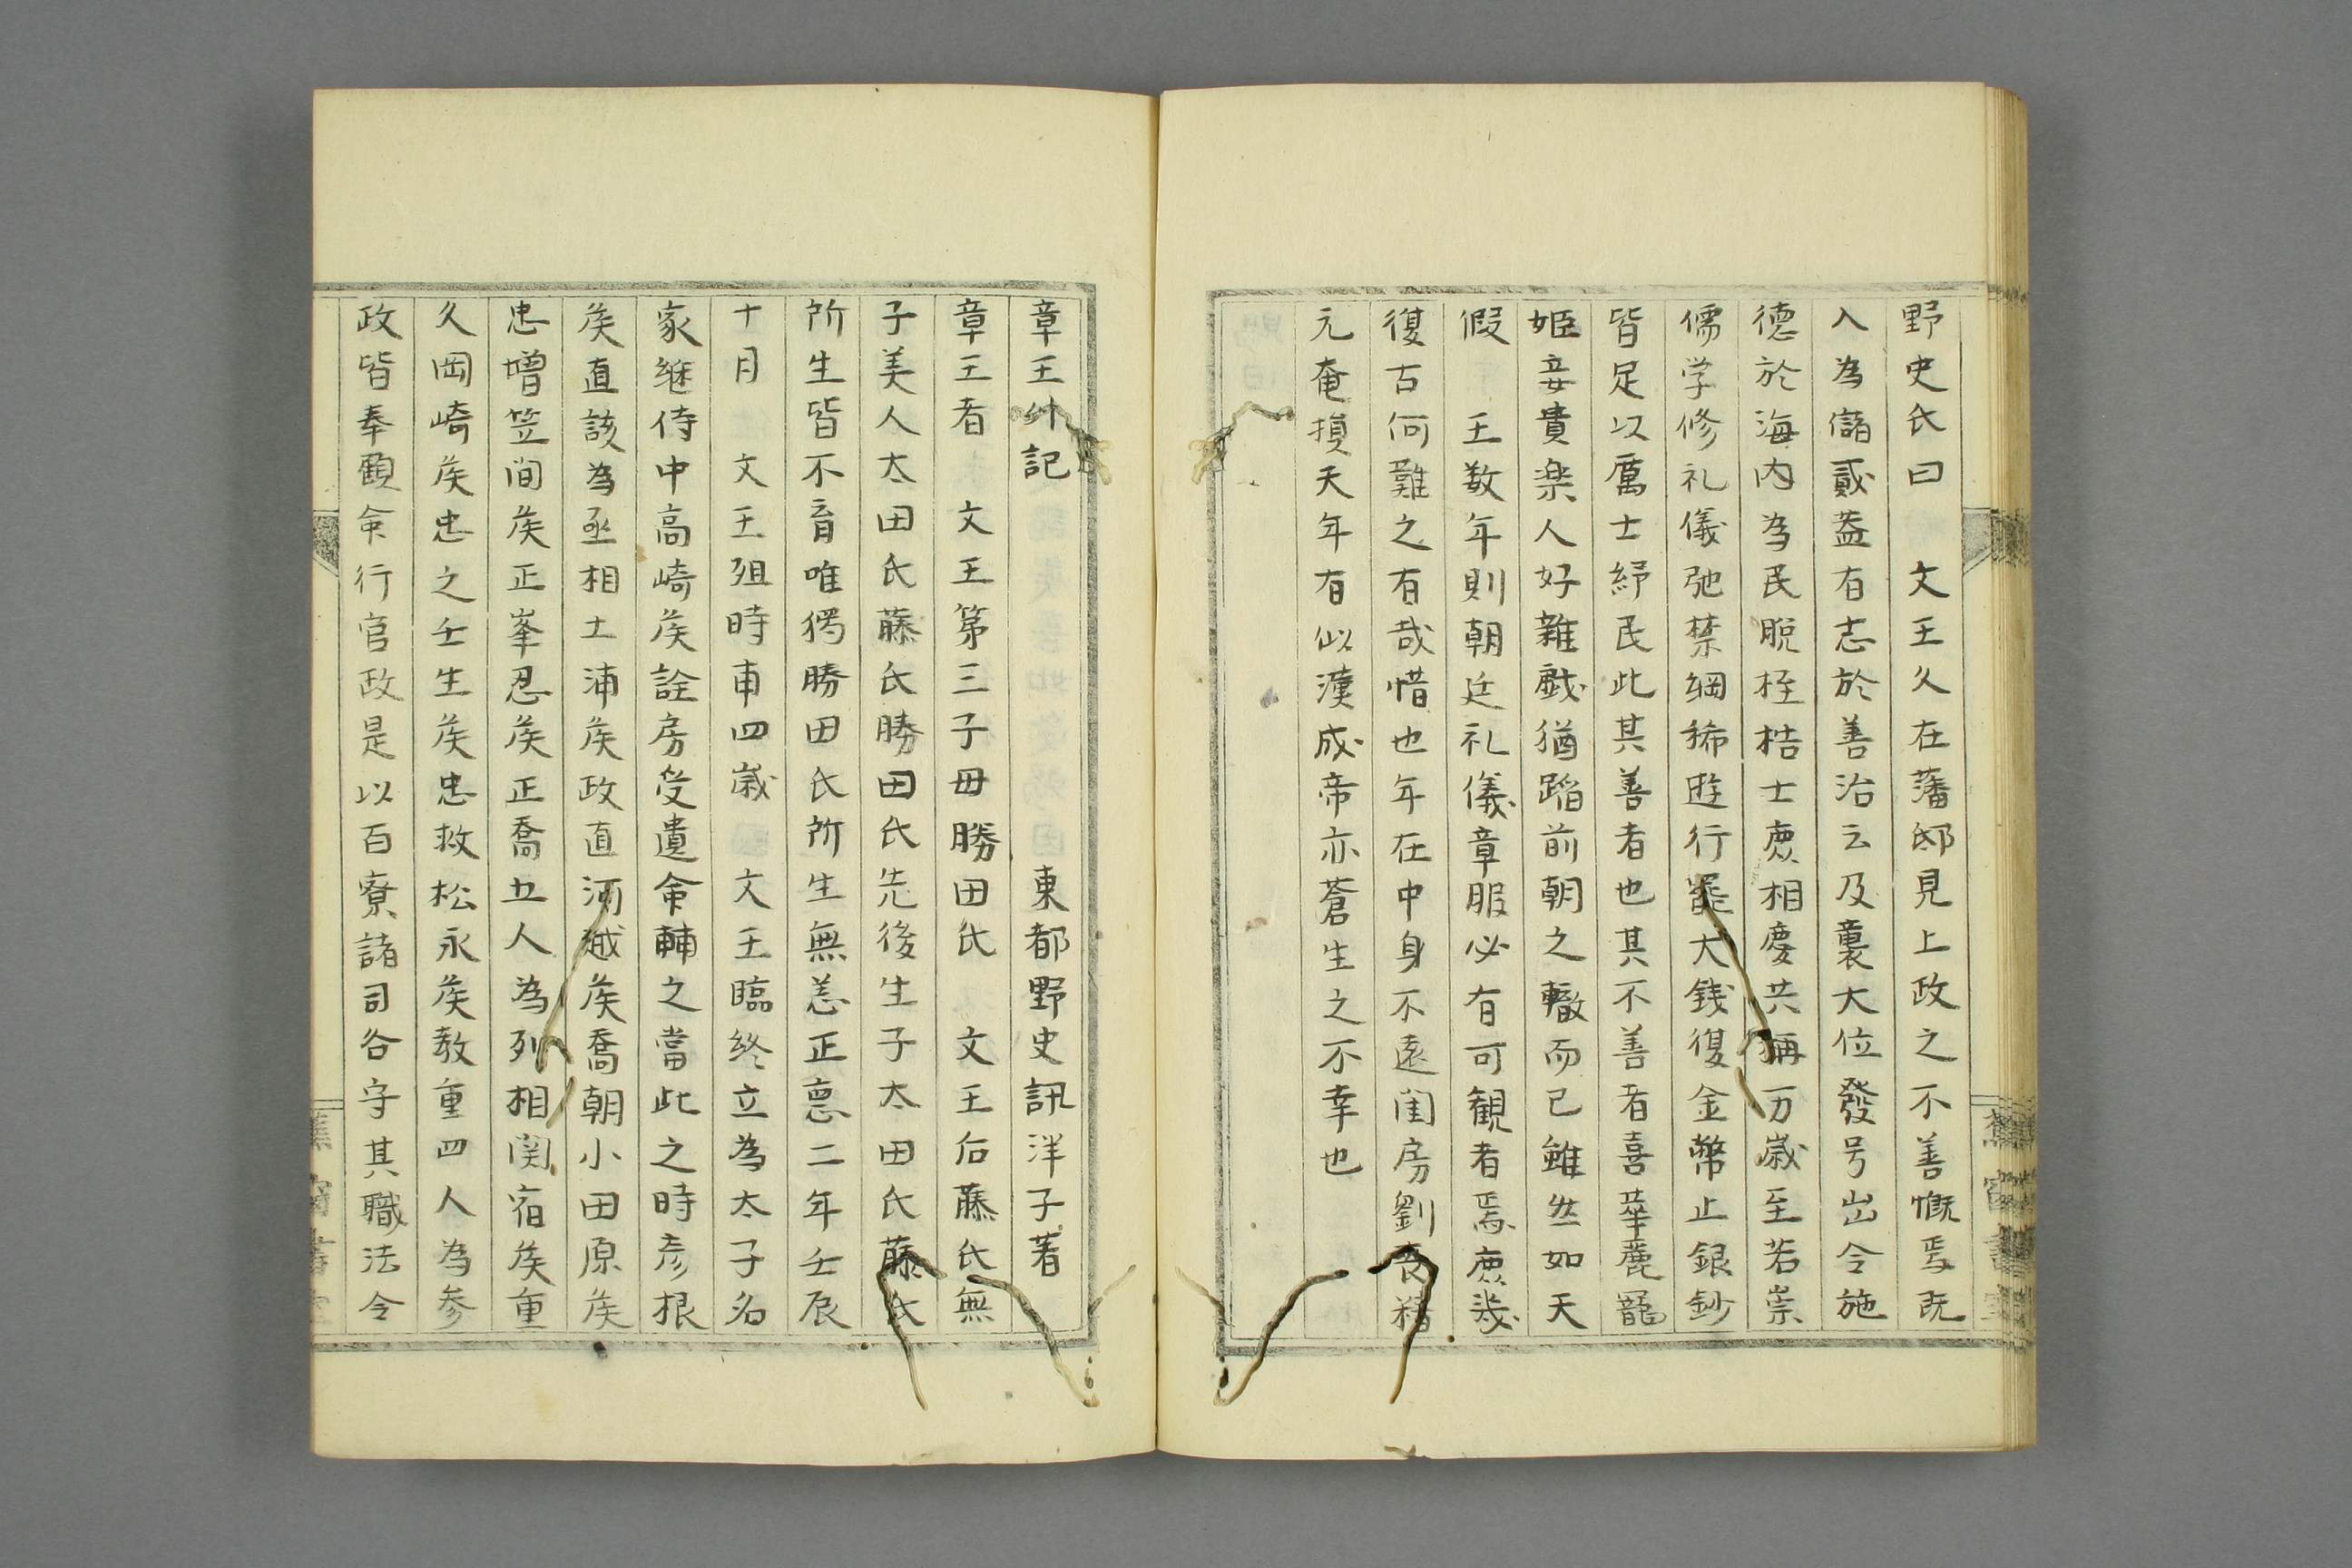 野史氏曰　文王久在藩邸見上政之不善慨焉既
入為儲貳盖有志於善治云及裏大位發号出令施
德於海内為民脱桎梏士庶相慶共稱万歳至若崇
儒学修礼儀弛禁綱稀遊行罷大銭復金幣止銀鈔
皆足以厲士紓民此其善者也其不善者喜華麗寵
姫妾貴楽人好雜戯猶蹈前朝之轍而已雖然如天
假　王数年則朝廷礼儀章服必有可観者焉庶幾
復古何難之有哉惜也年在中身不遠閨房劉喪稽
元奄損天年有似漢成帝亦蒼生之不幸也
章王外記　東都野史訊洋子著
章王者　文王第三子毋勝田氏　文王后藤氏無
子美人太田氏藤氏勝田氏先後生子太田氏藤氏
所生皆不育唯獨勝田氏所生無恙正悳二年壬辰
十月　文王殂時甫四歳　文王臨終立為太子名
家継侍中高崎矦詮房受遺命輔之當此之時彦根
矦直該為丞相土浦矦政直河越矦喬朝小田原矦
忠増笠间矦正峯忍矦正喬五人為列相関宿矦重
久岡崎矦忠之壬生矦忠救松永矦教重四人為参
政皆奉顧命行官政是以百寮諸司各守其職法令